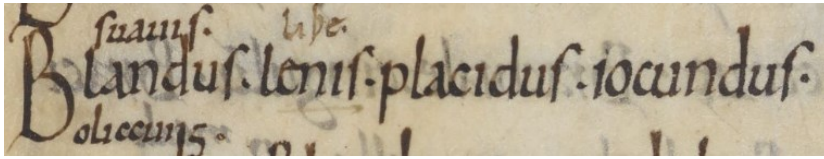 suauis. libe.
Blandus. lenis. placidus. iocundus.